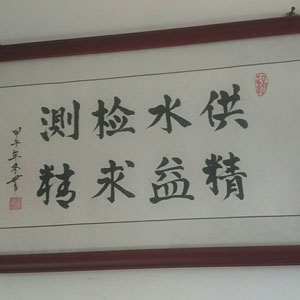 供精
水益
检求
测精
甲午年冬书